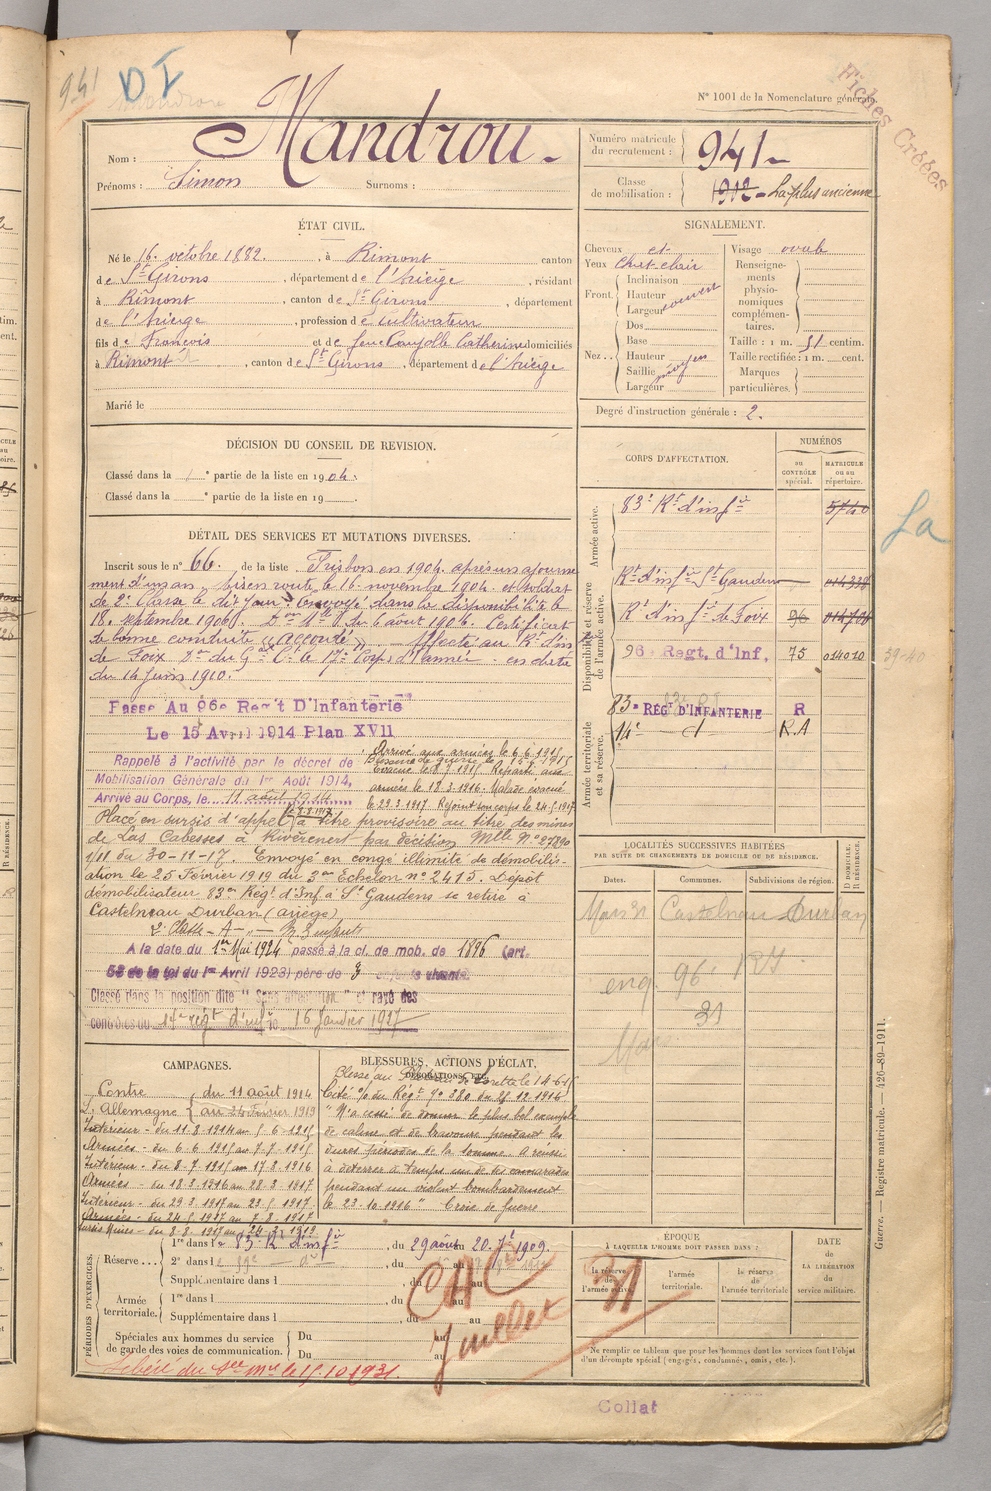 941
DI
N° 1001 de la Nomenclature générale.
Fiches Créées
Nom : Mandrou
Prénoms : Simon Surnoms :
Numéro matricule du recrutement : 941
Classe de mobilisation : 1902 La plus ancienne
ÉTAT CIVIL.
Né le 16 octobre 1882, à Rimont canton
de St Girons, département de l'Ariège, résidant
à Rimont, canton de St Girons, département
de l'Ariège, profession de cultivateur
fils de François et de feue Caujolle Catherine domiciliés
à Rimont, canton de St Girons, département de l'Ariège
Marié le
SIGNALEMENT.
Cheveux et
Yeux Chat. clair
Front.
Inclinaison
Hauteur
Largeur
Nez..
Dos
Base
Hauteur
Saillie
Largeur
moyen
Visage ovale
Renseignements physionomiques complémentaires.
Taille : 1 m. 51 centim.
Taille rectifiée : 1 m. cent.
Marques particulières.
Degré d'instruction générale : 2.
DÉCISION DU CONSEIL DE REVISION.
Classé dans la 1e partie de la liste en 1904.
Classé dans la e partie de la liste en 19
DÉTAIL DES SERVICES ET MUTATIONS DIVERSES.
Inscrit sous le n° 66 de la liste en 1904 après un ajourne
ment d'un an. Mis en route le 16 novembre 1904 et soldat
de 2e Classe le dit jour. Envoyé dans la disponibilité le
18 septembre 1906. du 6 août 1906. Certificat
de bonne conduite « Accordé » Affecté au Rt d'Inf
de Foix Don du Gal Ct le 17e Corps d'armée en date
du 14 juin 1910.
Passe Au 96e Regt D'Infanterie
Le 15 Avril 1914 Plan XVII
Rappelé à l'activité par le décret de
Mobilisation Générale du 1er Août 1914,
Arrivé au Corps, le 11 août 1914
Arrivé aux armées le 6.6.1915
Evacué le 8.7.1915 Reparti aux
armées le 18.3.1916. Malade évacué
le 29.3.1917. Rejoint son corps le 24.5.1917
Placé en sursis d'appel le 8.8.1917 à titre provisoire au titre des mines
de Las Cabesses à Rivèrenert par décision Mlle N° 27890
1/11 du 30-11-17. Envoyé en congé illimité de démobilis-
ation le 25 Février 1919 du 3me Echelon n° 2415. Dépôt
démobilisateur 83me Régt d'Inf. à St Gaudens se retire à
Castelnau Durban (Ariège)
A la date du 1er Mai 1924 passé à la cl. de mob. de 1896 (art.
58 de la loi du 1er Avril 1923) père de 3 enfants vivants.
Classé dans la position dite "Sans affectation" et rayé des
contrôles du 14e régt d'infie le 16 Janvier 1927
CORPS D'AFFECTATION.
NUMÉROS
au CONTRÔLE spécial.
MATRICULE ou au répertoire.
Armée active.
83e Rt d'infie 5740
Disponibilité et réserve de l'armée active.
Rt d'infie St Gaudens
Rt d'infie de Foix 96
96 Regt. d'Inf. 75 014010
59-40
La
Armée territoriale et sa réserve.
83e RÉGt D'INFANTERIE R
14e d° R.A
LOCALITÉS SUCCESSIVES HABITÉES
PAR SUITE DE CHANGEMENTS DE DOMICILE OU DE RÉSIDENCE.
Dates. Communes. Subdivisions de région. D DOMICILE. R RÉSIDENCE.
Castelnau-Durban
96
31
CAMPAGNES.
Contre L'Allemagne
du 11 août 1914
au 24 février 1919
Intérieur - du 11.8.1914 au 5.6.1915
Armées - du 6.6.1915 au 7.7.1915
Intérieur - du 8.7.1915 au 17.3.1916
Armées - du 18.3.1916 au 28.3.1917
Intérieur - du 29.3.1917 au 23.5.1917
Armées - du 24.5.1917 au 7.8.1917
Sursis Mines - du 8.8.1917 au 24.2.1919
BLESSURES, ACTIONS D'ÉCLAT, DÉCORATIONS, ETC.
Cité % du Régt N° 380 du 25.12.1916
"N'a cessé de donner le plus bel exemple
de calme et de bravoure pendant les
dures périodes de la Somme. A réussi
à déterrer à temps un de ses camarades
pendant un violent bombardement
le 23.10.1916" Croix de guerre
PÉRIODES D'EXERCICES.
Réserve...
1re dans le 83e Rt d'Infie, du 29 août au 20 7bre 1909.
2e dans le 59e
Supplémentaire dans l , du au
Armée territoriale.
1re dans l , du au
Supplémentaire dans l , du au
Spéciales aux hommes du service de garde des voies de communication.
Du au
Du au
Juillet
31
Libéré du Sce Mre le 15.10.1931.
ÉPOQUE
À LAQUELLE L'HOMME DOIT PASSER DANS :
la réserve de l'armée active.
l'armée territoriale.
la réserve de l'armée territoriale
DATE de LA LIBÉRATION du service militaire.
Ne remplir ce tableau que pour les hommes dont les services font l'objet
d'un décompte spécial (engagés, condamnés, omis, etc.).
Guerre. — Registre matricule. — 426-89-1911.
Collat